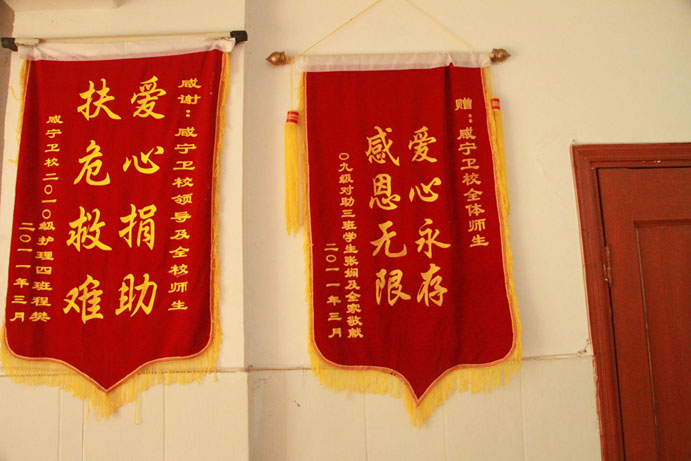 感谢：咸宁卫校领导及全校师生
爱心捐助
扶危救难
咸宁卫校二〇一〇级护理四班程樊
二〇一一年三月
赠：咸宁卫校全体师生
爱心永存
感恩无限
〇九级对助三班学生张娴及全家敬献
二〇一一年三月